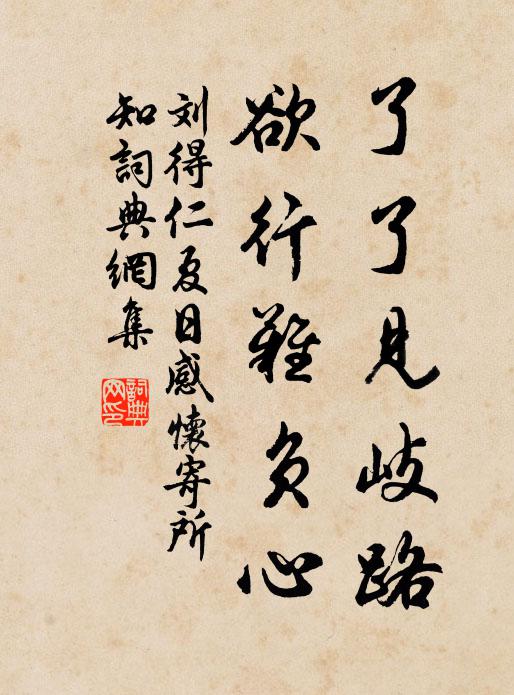 了了見歧路
欲行難負心
刘得仁夏日感懷寄所
知詞典網集
詞典
网印